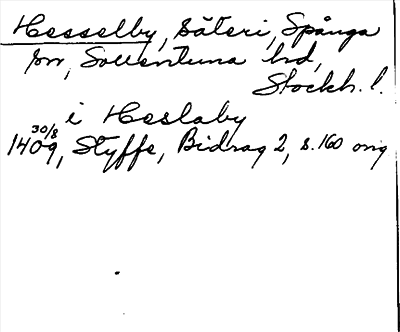 Hesselby, säteri, Spånga
sn, Sollentuna hd,
Stockh. l.
i Heslaby
1409 30/8, Styffe, Bidrag 2, s. 160 orig